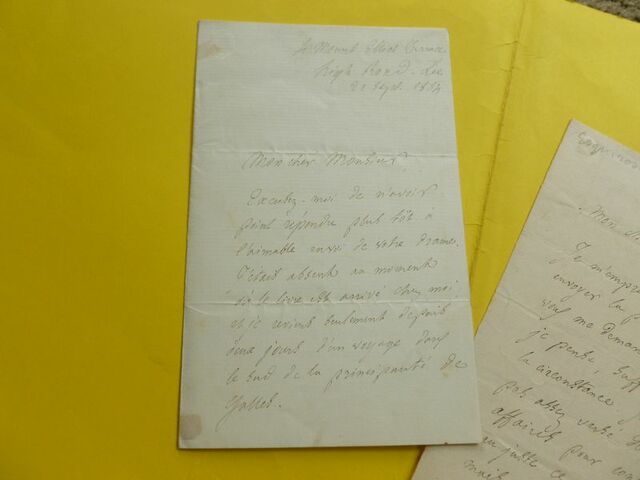 4 Mount Elliot Terrace
High Road. Lee
21 Sept. 1864
Mon cher Monsieur,
Excusez-moi de n'avoir
point répondu plus tôt à
l'aimable envoi de votre drame.
J'étais absent au moment
où le livre est arrivé chez moi
et je reviens seulement depuis
deux jours d'un voyage dans
le sud de la principauté de
Galles.
Esquiros
Mon
Je m'empre
envoyer la p
vous me deman
je pense, suff
la circonstance
pas assez versé
affaires pour con
au juste ce
mais